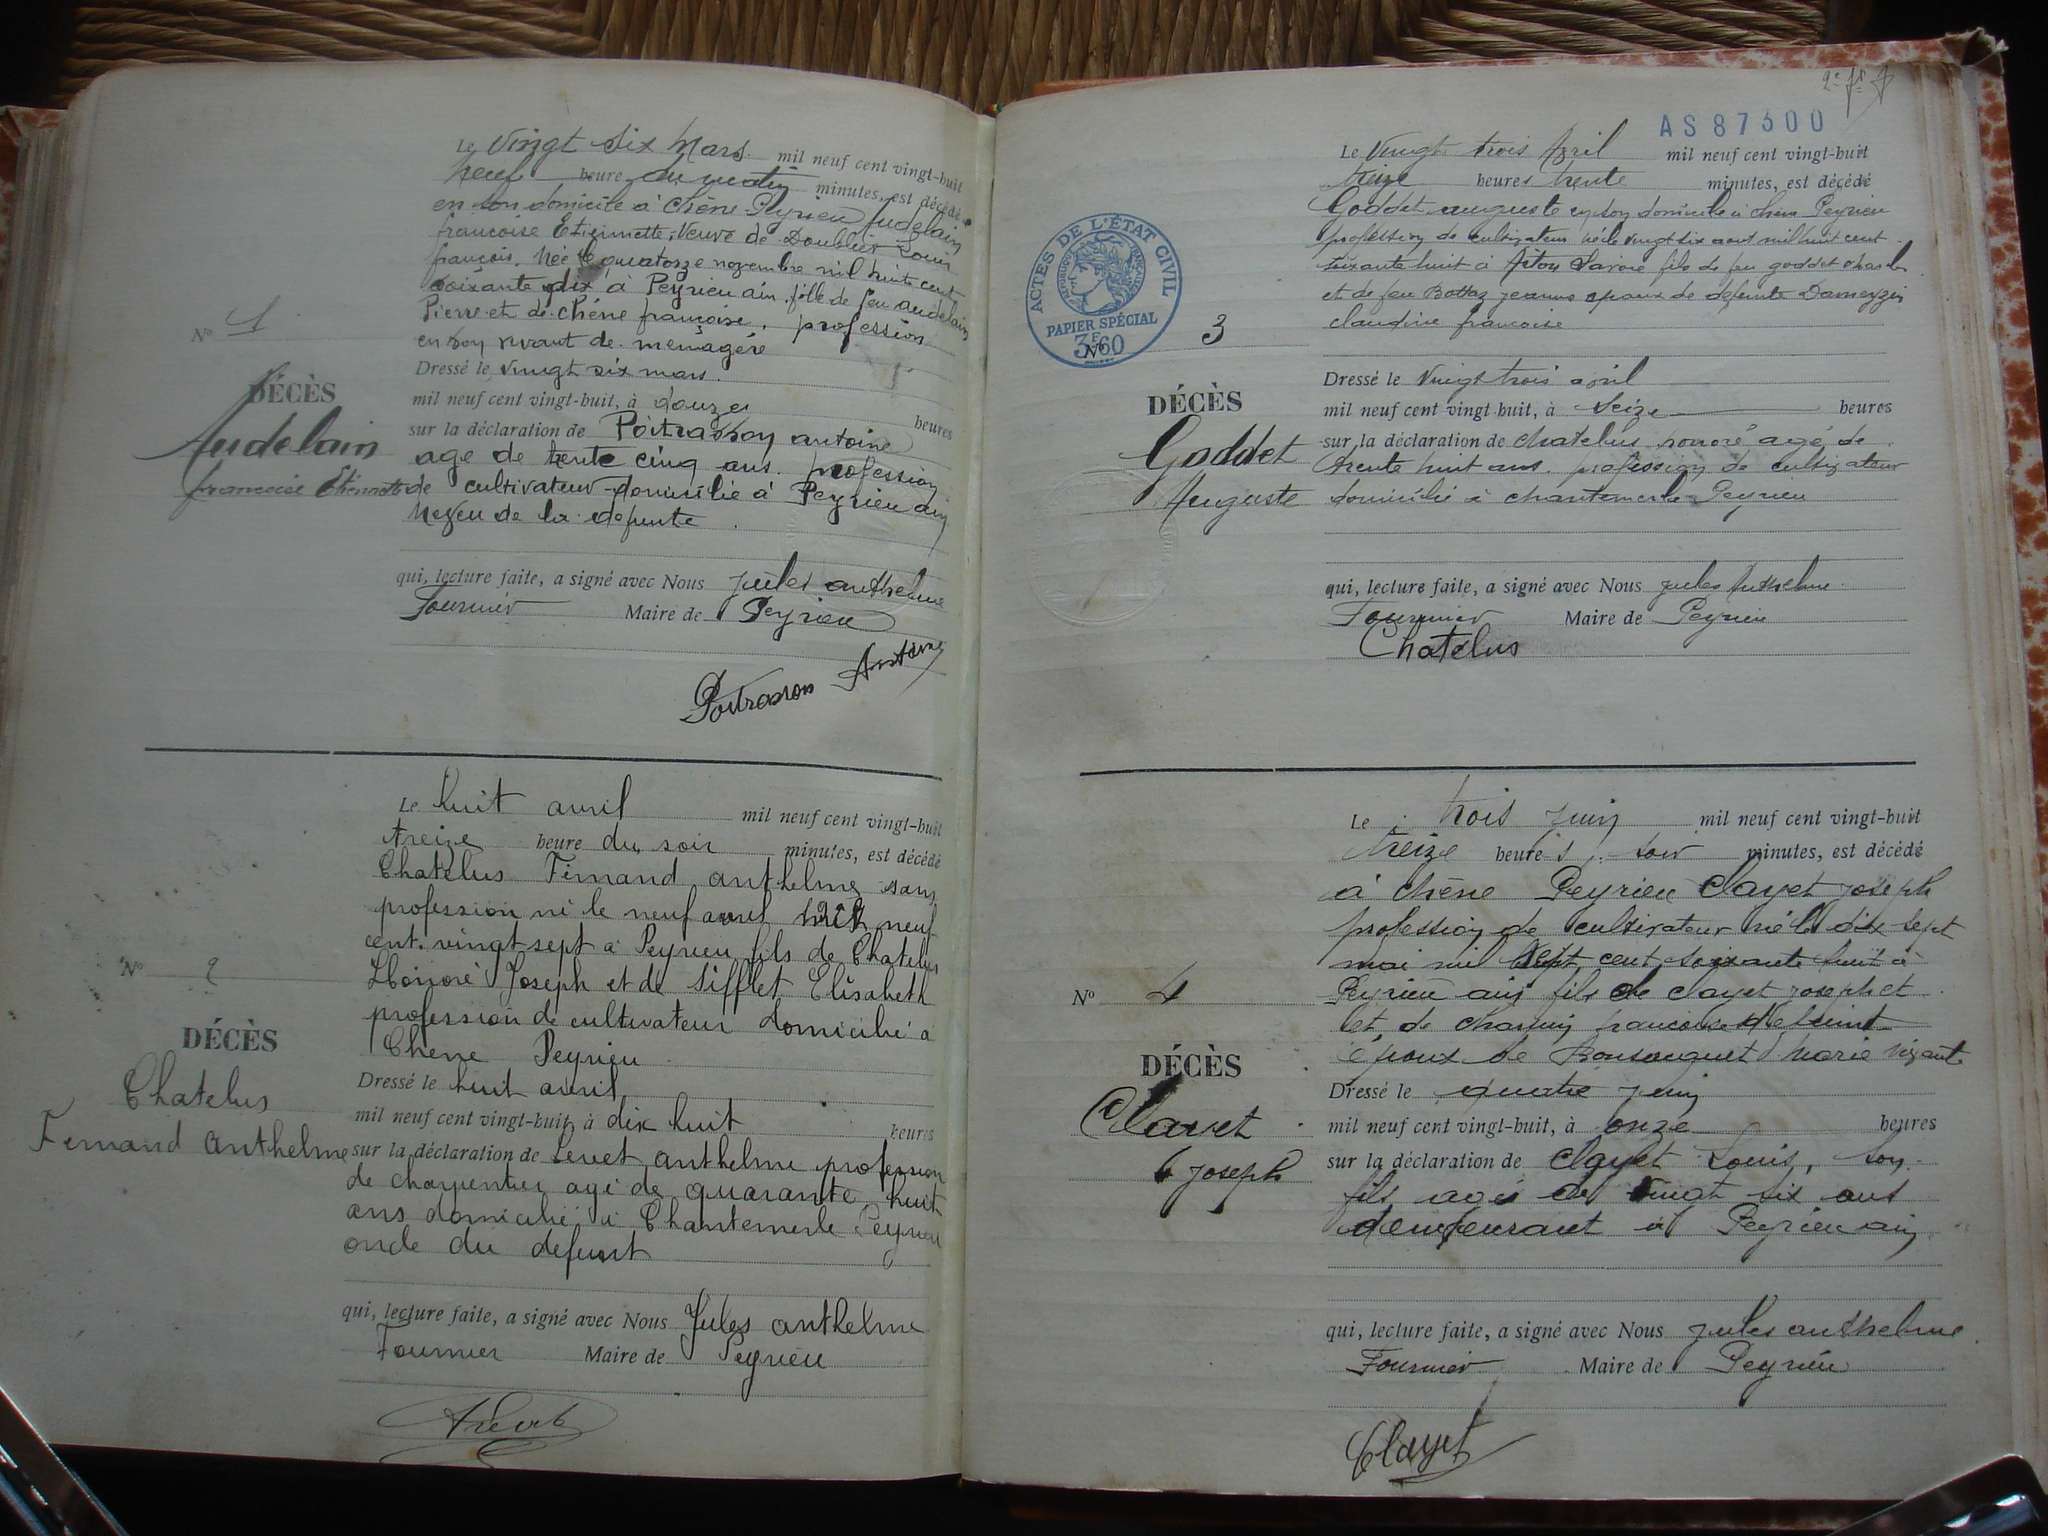 Le vingt six Mars mil neuf cent vingt-huit
neuf heure du matin minutes, est décédé
en son domicile à Chêne Peyrieu Audelain
françoise Etiennette, Veuve de Doublier Louis
françois. Née le quatorze novembre mil huit cent
soixante dix à Peyrieu ain. fille de feu audelain
Pierre et de Chêne françoise. profession
en son vivant de menagére
Nº 1
Dressé le vingt six mars.
DÉCÈS
mil neuf cent vingt-huit, à douze heures
Audelain
sur la déclaration de Poitrasson antoine
age de trente cinq ans. profession
françoise Etiennette
de cultivateur domicilié à Peyrieu ain
Neveu de la defunte
qui, lecture faite, a signé avec Nous jules anthelme
Fournier Maire de Peyrieu
Poitrasson Antoine
Le huit avril mil neuf cent vingt-huit
treize heure du soir minutes, est décédé
Chatelus Fernand anthelme sans
profession né le neuf avril neuf
cent vingt sept à Peyrieu fils de Chatelus
Honoré Joseph et de Sifflet Elisabeth
profession de cultivateur domicilié à
Chene Peyrieu
Nº 2
DÉCÈS
Chatelus
Fernand anthelme
Dressé le huit avril
mil neuf cent vingt-huit, à dix huit heures
sur la déclaration de Levet anthelme profession
de charpentier agé de quarante huit
ans domicilié à Chantemerle Peyrieu
oncle du defunt
qui, lecture faite, a signé avec Nous Jules anthelme
Fournier Maire de Peyrieu
AS 87300
Le Vingt trois Avril mil neuf cent vingt-huit
treize heures trente minutes, est décédé
Goddet auguste en son domicile à chene Peyrieu
profession de cultivateur né le vingt six aout mil huit cent
soixante huit à Aiton Savoie fils de feu goddet charles
et de feu Bottaz jeanne epoux de defunte
claudine francoise
ACTES DE L'ÉTAT CIVIL
PAPIER SPÉCIAL
3F60
Nº 3
DÉCÈS
Goddet
Auguste
Dressé le Vingt trois avril
mil neuf cent vingt-huit, à Seize heures
sur la déclaration de chatelus honoré agé de
trente huit ans. profession de cultivateur
domicilié à chantemerle Peyrieu
qui, lecture faite, a signé avec Nous jules Anthelme
Fournier Maire de Peyrieu
Chatelus
Le trois juin mil neuf cent vingt-huit
treize heures soir minutes, est décédé
à Chêne Peyrieu Clayet joseph
profession de cultivateur né le dix sept
mai mil cent soixante huit à
Peyrieu ain fils de clayet joseph et
et de francoise defunt
époux de Marie
Nº 4
DÉCÈS
Clayet
joseph
Dressé le quatre juin
mil neuf cent vingt-huit, à onze heures
sur la déclaration de Clayet Louis, son
fils agé de vingt six ans
demeurant à Peyrieu ain
qui, lecture faite, a signé avec Nous jules anthelme
Fournier Maire de Peyrieu
Clayet